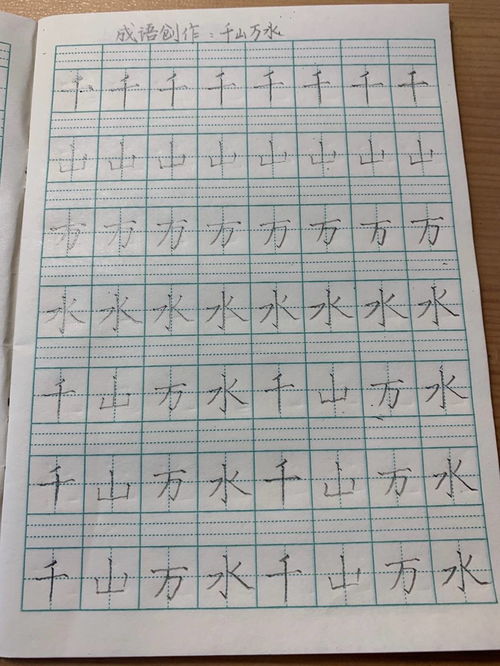 成语创作：千山万水
千千千千千千千千
山山山山山山山山
万万万万万万万万
水水水水水水水水
千山万水千山万水
千山万水千山万水
千山万水千山万水